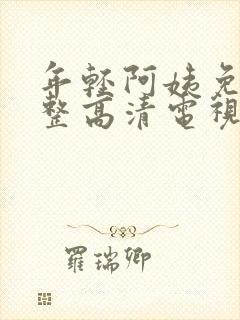 年輕阿姨免
整高清電視
羅瑞卿